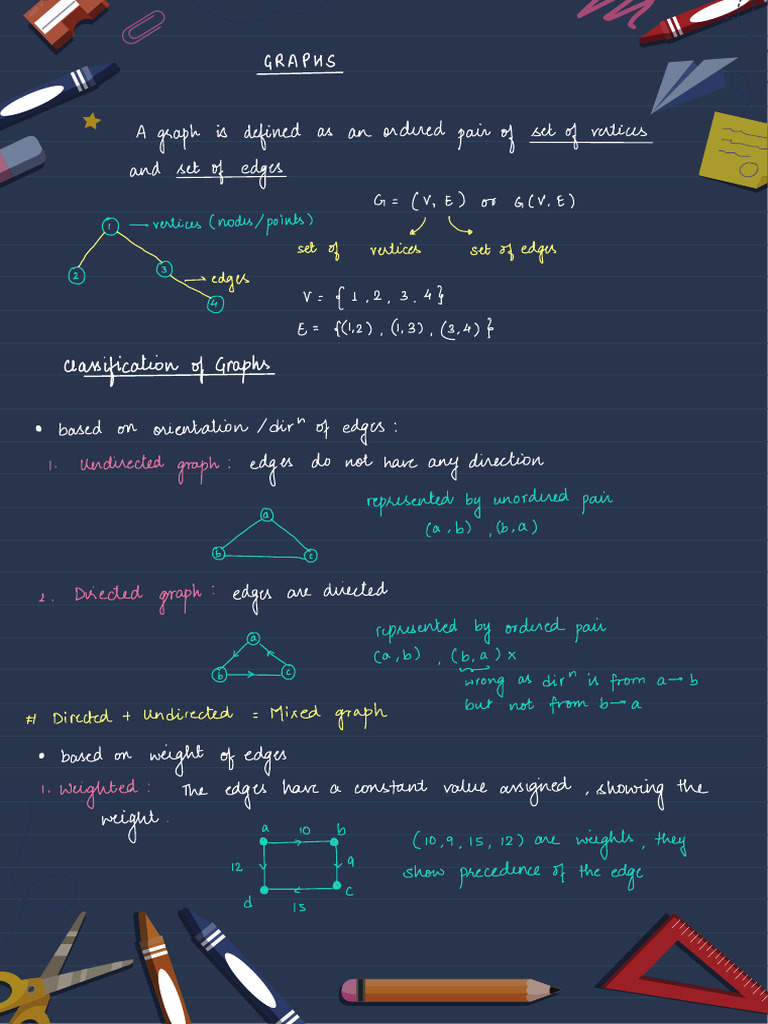 GRAPHS
A graph is defined as an ordered pair of set of vertices
and set of edges
G = (V, E) or G(V.E)
1 → vertices (nodes/points)
set of vertices set of edges
2 3 → edges
4
V = { 1, 2, 3. 4}
E = {(1,2), (1,3), (3,4)}
Classification of Graphs
• based on orientation/dirⁿ of edges:
1. Undirected graph: edges do not have any direction
represented by unordired pair
(a,b), (b,a)
a
b c
2. Directed graph: edges are directed
represented by ordered pair
(a,b), (b,a) x
a
b c
wrong as dirⁿ is from a→b
but not from b→a
# Directed + Undirected = Mixed graph
• based on weight of edges
1. Weighted: The edges have a constant value assigned, showing the
weight.
a 10 b
(10,9, 15, 12) are weights, they
12 9
show precedence of the edge
d 15 c